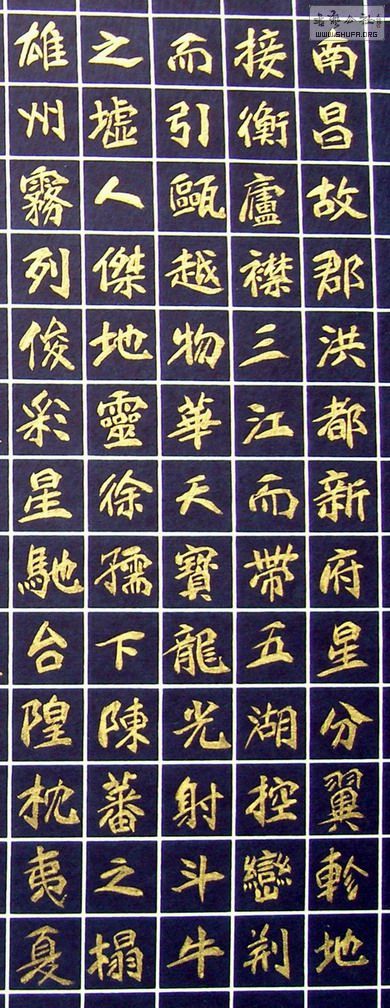 南昌故郡洪都新府星分翼軫地
接衡廬襟三江而帶五湖控蠻荊
而引甌越物華天寶龍光射斗牛
之墟人傑地靈徐孺下陳蕃之榻
雄州霧列俊彩星馳台隍枕夷夏
WWW.SHUFR.ORG